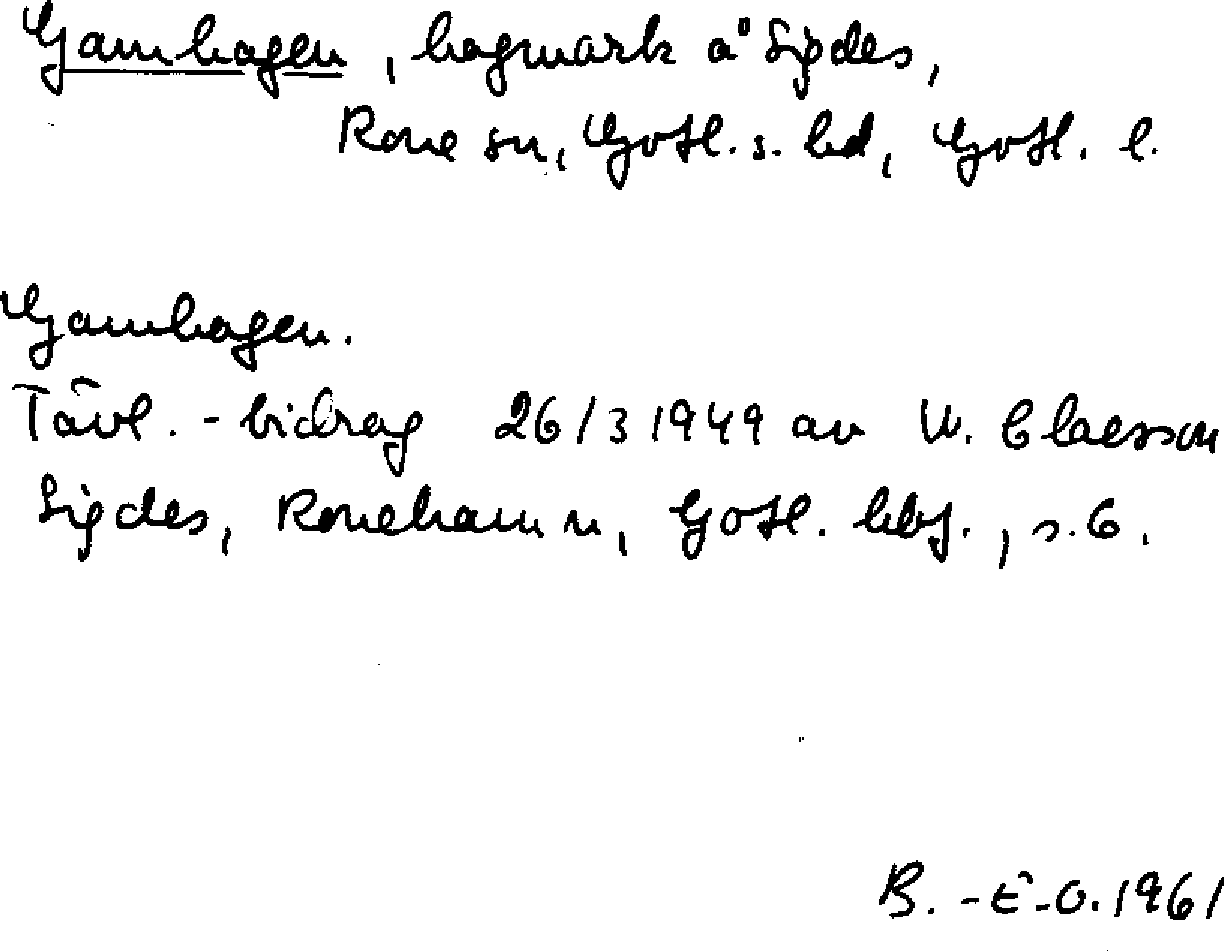 Gamhagen, hagmark å Sigdes,
Rone sn, Gotl. s. hd, Gotl. l.
Gamhagen.
Tävl. - bidrag 26/3 1949 av W. Claesson
Sigdes, Ronehamn, Gotl. hbf., s. 6.
B. - E - O. 1961